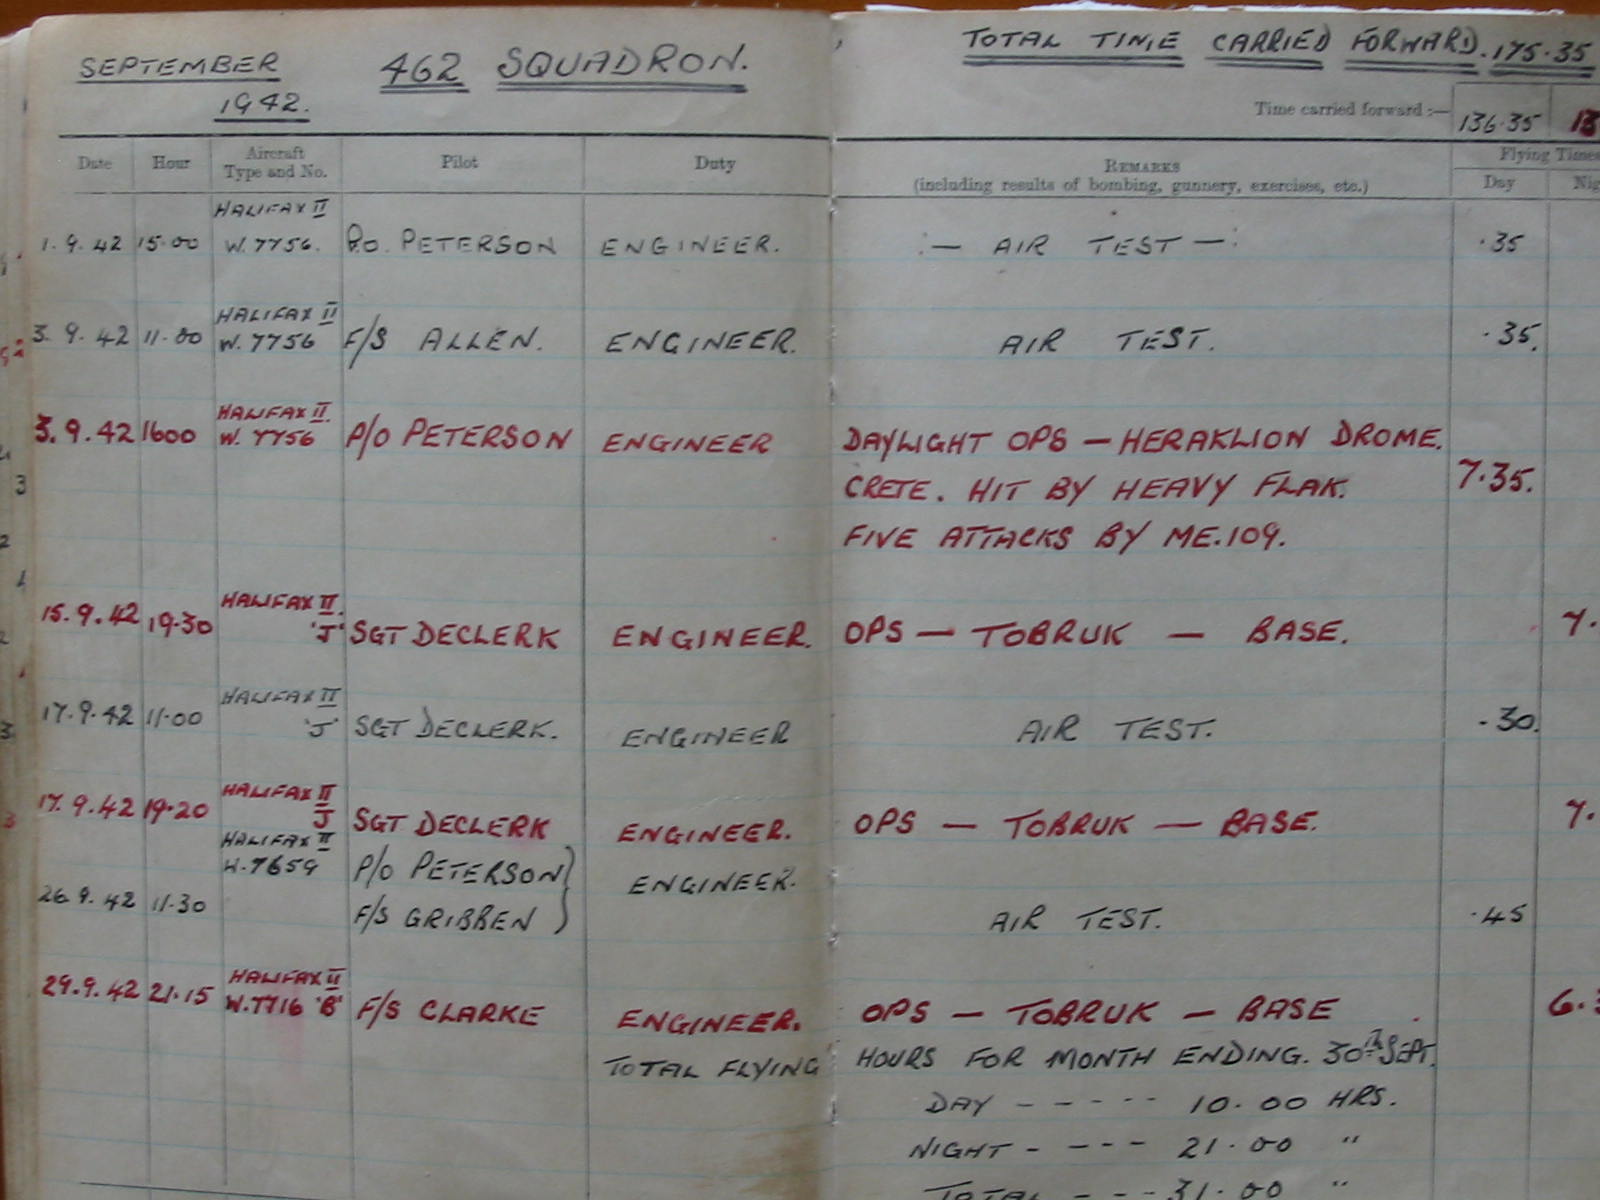 SEPTEMBER 462 SQUADRON.
1942.
TOTAL TIME CARRIED FORWARD. 175.35
Time carried forward :— 136.35
Date Hour Aircraft Type and No. Pilot Duty REMARKS Flying Times
(including results of bombing, gunnery, exercises, etc.) Day
HALIFAX II
1.9.42 15.00 W.7756. P.O. PETERSON ENGINEER. :— AIR TEST —: .35
HALIFAX II
3.9.42 11.00 W.7756 F/S ALLEN. ENGINEER. AIR TEST. .35.
HALIFAX II.
3.9.42 1600 W.7756 P/O PETERSON ENGINEER DAYLIGHT OPS — HERAKLION DROME.
CRETE. HIT BY HEAVY FLAK. 7.35.
FIVE ATTACKS BY ME.109.
HALIFAX II.
15.9.42 19.30 'J' SGT DECLERK ENGINEER. OPS — TOBRUK — BASE. 7.
HALIFAX II
17.9.42 11.00 'J' SGT DECLERK. ENGINEER AIR TEST. .30.
HALIFAX II
17.9.42 19.20 J SGT DECLERK ENGINEER. OPS — TOBRUK — BASE. 7.
HALIFAX II
W.7659 P/O PETERSON ENGINEER.
26.9.42 11.30 F/S GRIBBEN AIR TEST. .45
HALIFAX II
29.9.42 21.15 W.7716 'B' F/S CLARKE ENGINEER. OPS — TOBRUK — BASE 6.
TOTAL FLYING HOURS FOR MONTH ENDING. 30TH SEPT.
DAY - - - - - 10.00 HRS.
NIGHT - - - - 21.00 "
TOTAL - - - 31.00 "